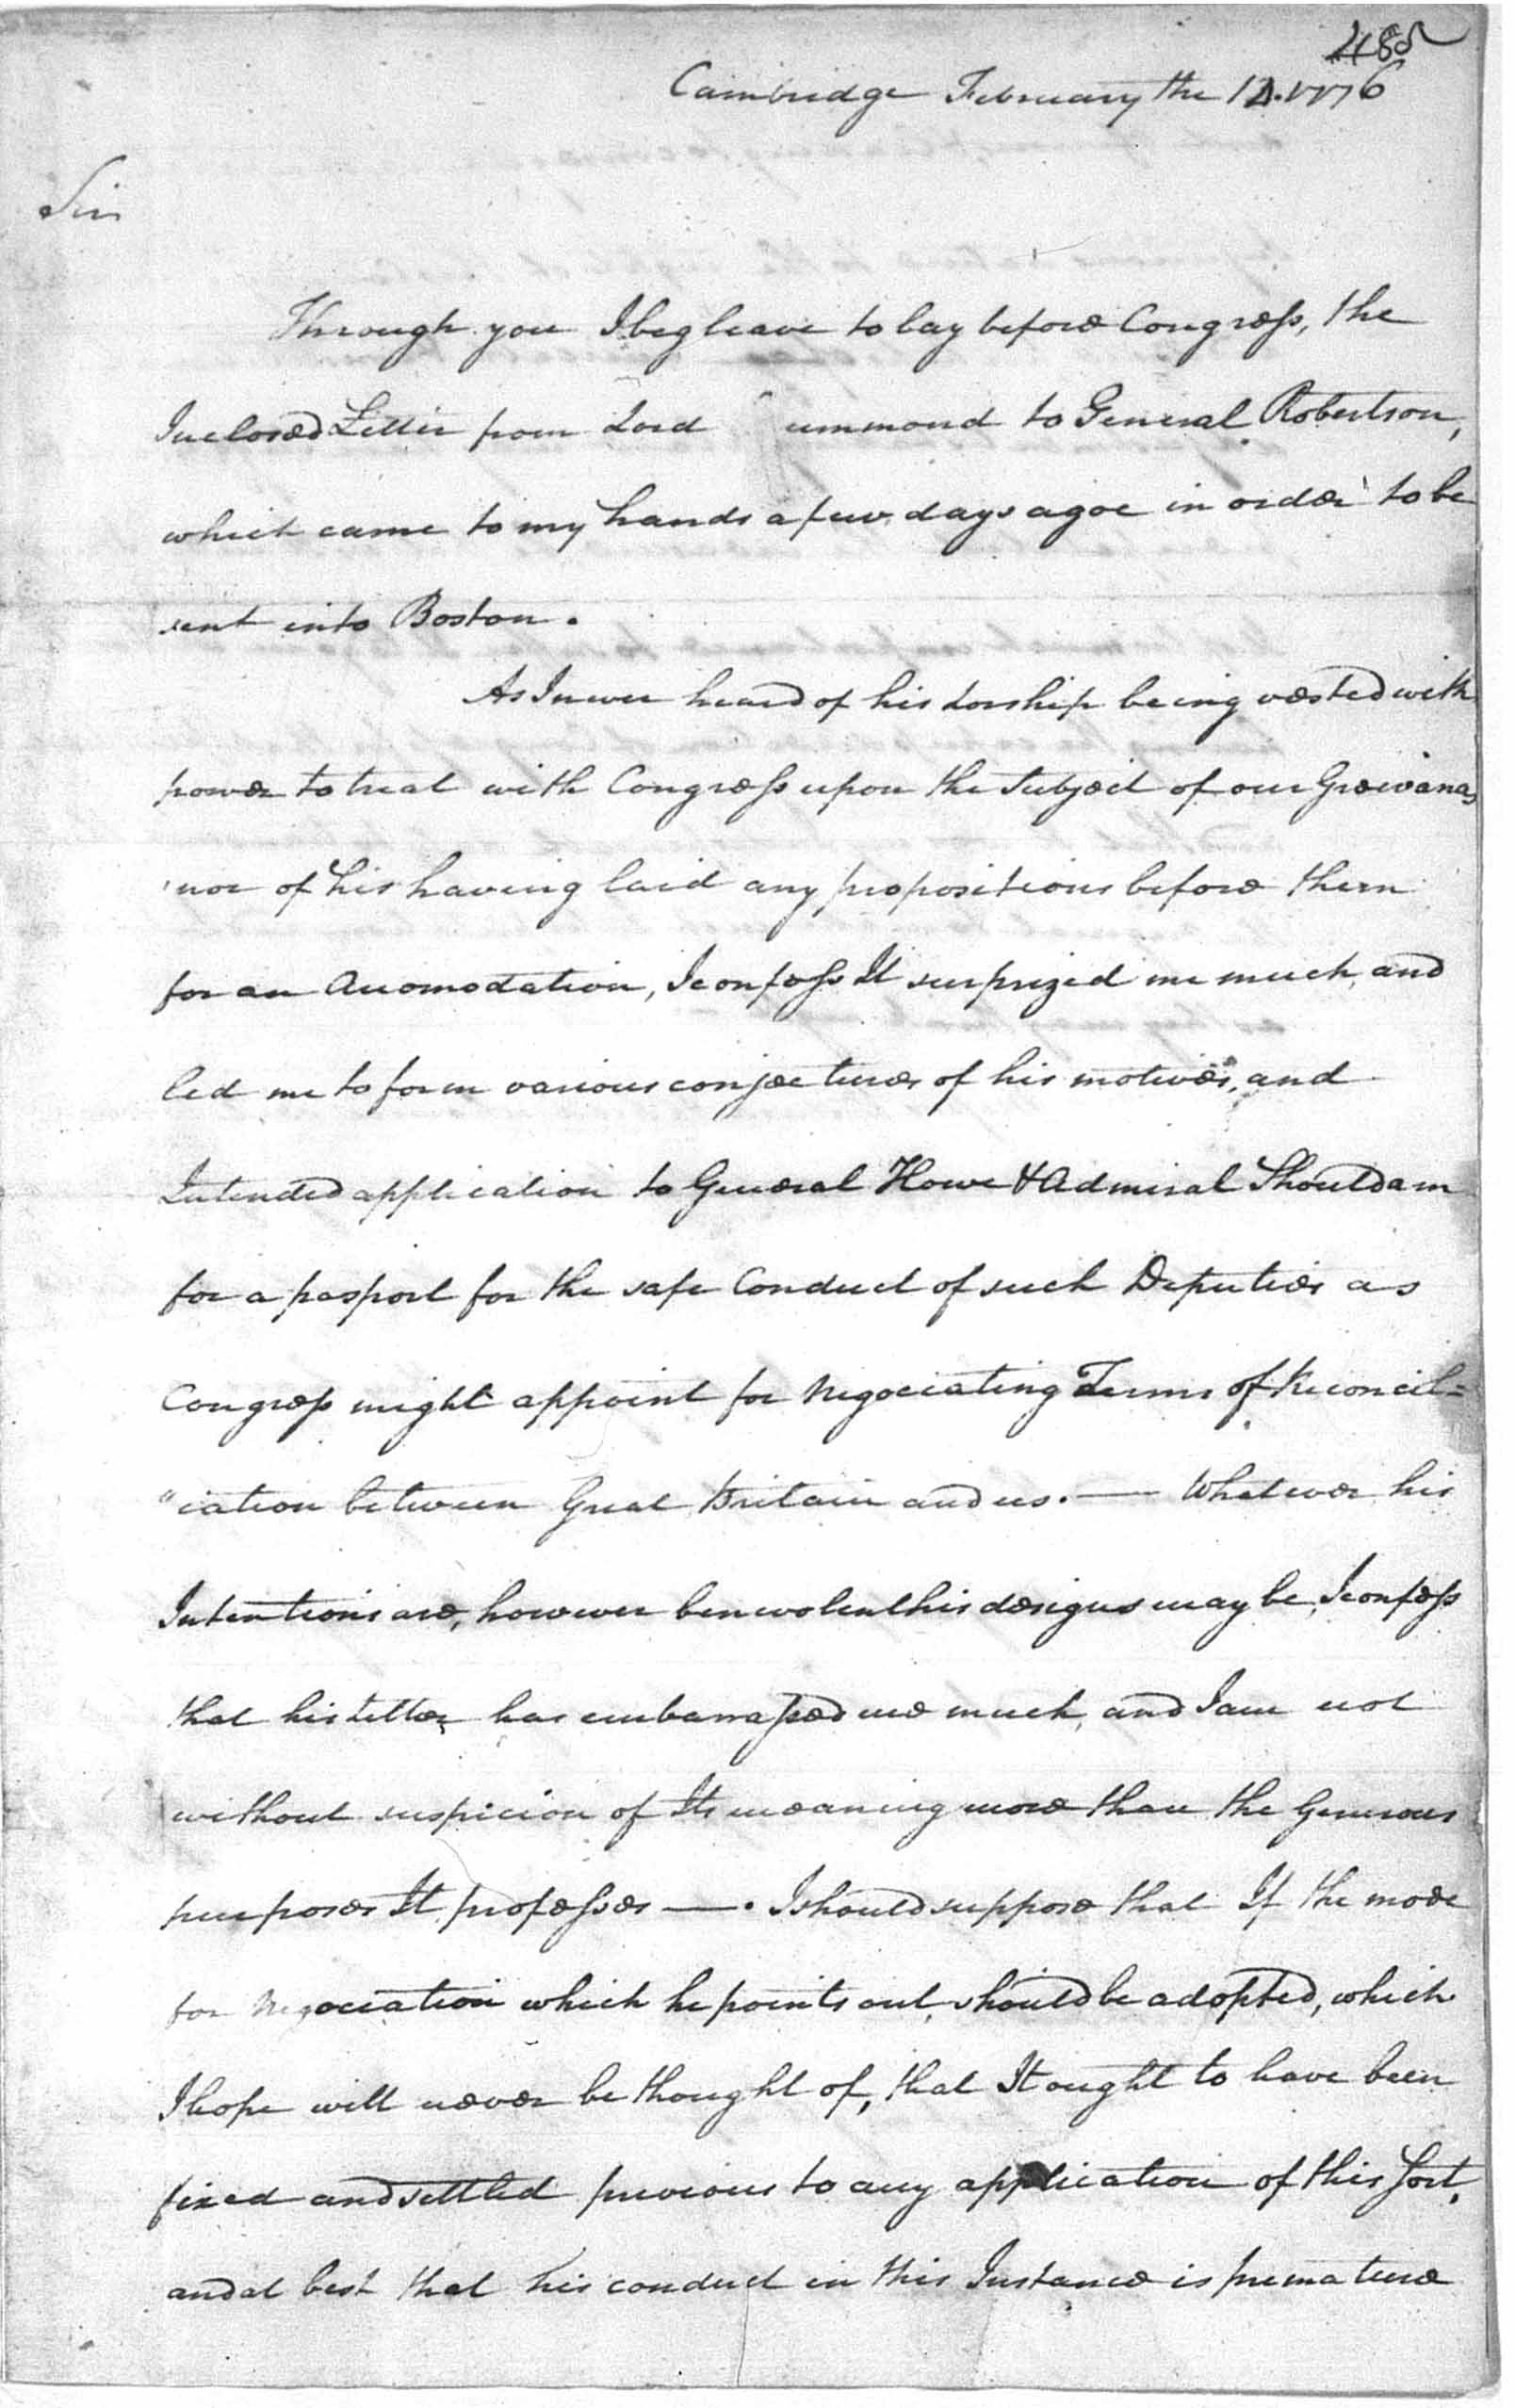 485
Cambridge February the 14. 1776
Sir
Through you I beg leave to lay before Congress, the
Inclosed Letter from Lord ummond to General Robertson,
which came to my hands a few days agoe in order to be
sent into Boston.
As I never heard of his Lorship being vested with
power to treat with Congress upon the Subject of our Greivances
nor of his having laid any propositions before them
for an Accomodation, I confess It surprized me much, and
led me to form various conjectures of his motives, and
Intended application to General Howe & Admiral Shouldam
for a pasport for the safe Conduct of such Deputies as
Congress might appoint for Negociating Terms of Reconcil=
"iation between Great Britain and us. — Whatever his
Intentions are, however benevolent his designs may be, I confess
that his Letter has embarrassed me much, and I am not
without suspicion of Its meaning more than the Generous
purposes It professes —. I should suppose that If the mode
for Negociation which he points out, should be adopted, which
I hope will never be thought of, that It ought to have been
fixed and settled previous to any application of this Sort,
and at best that his conduct in this Instance is premature